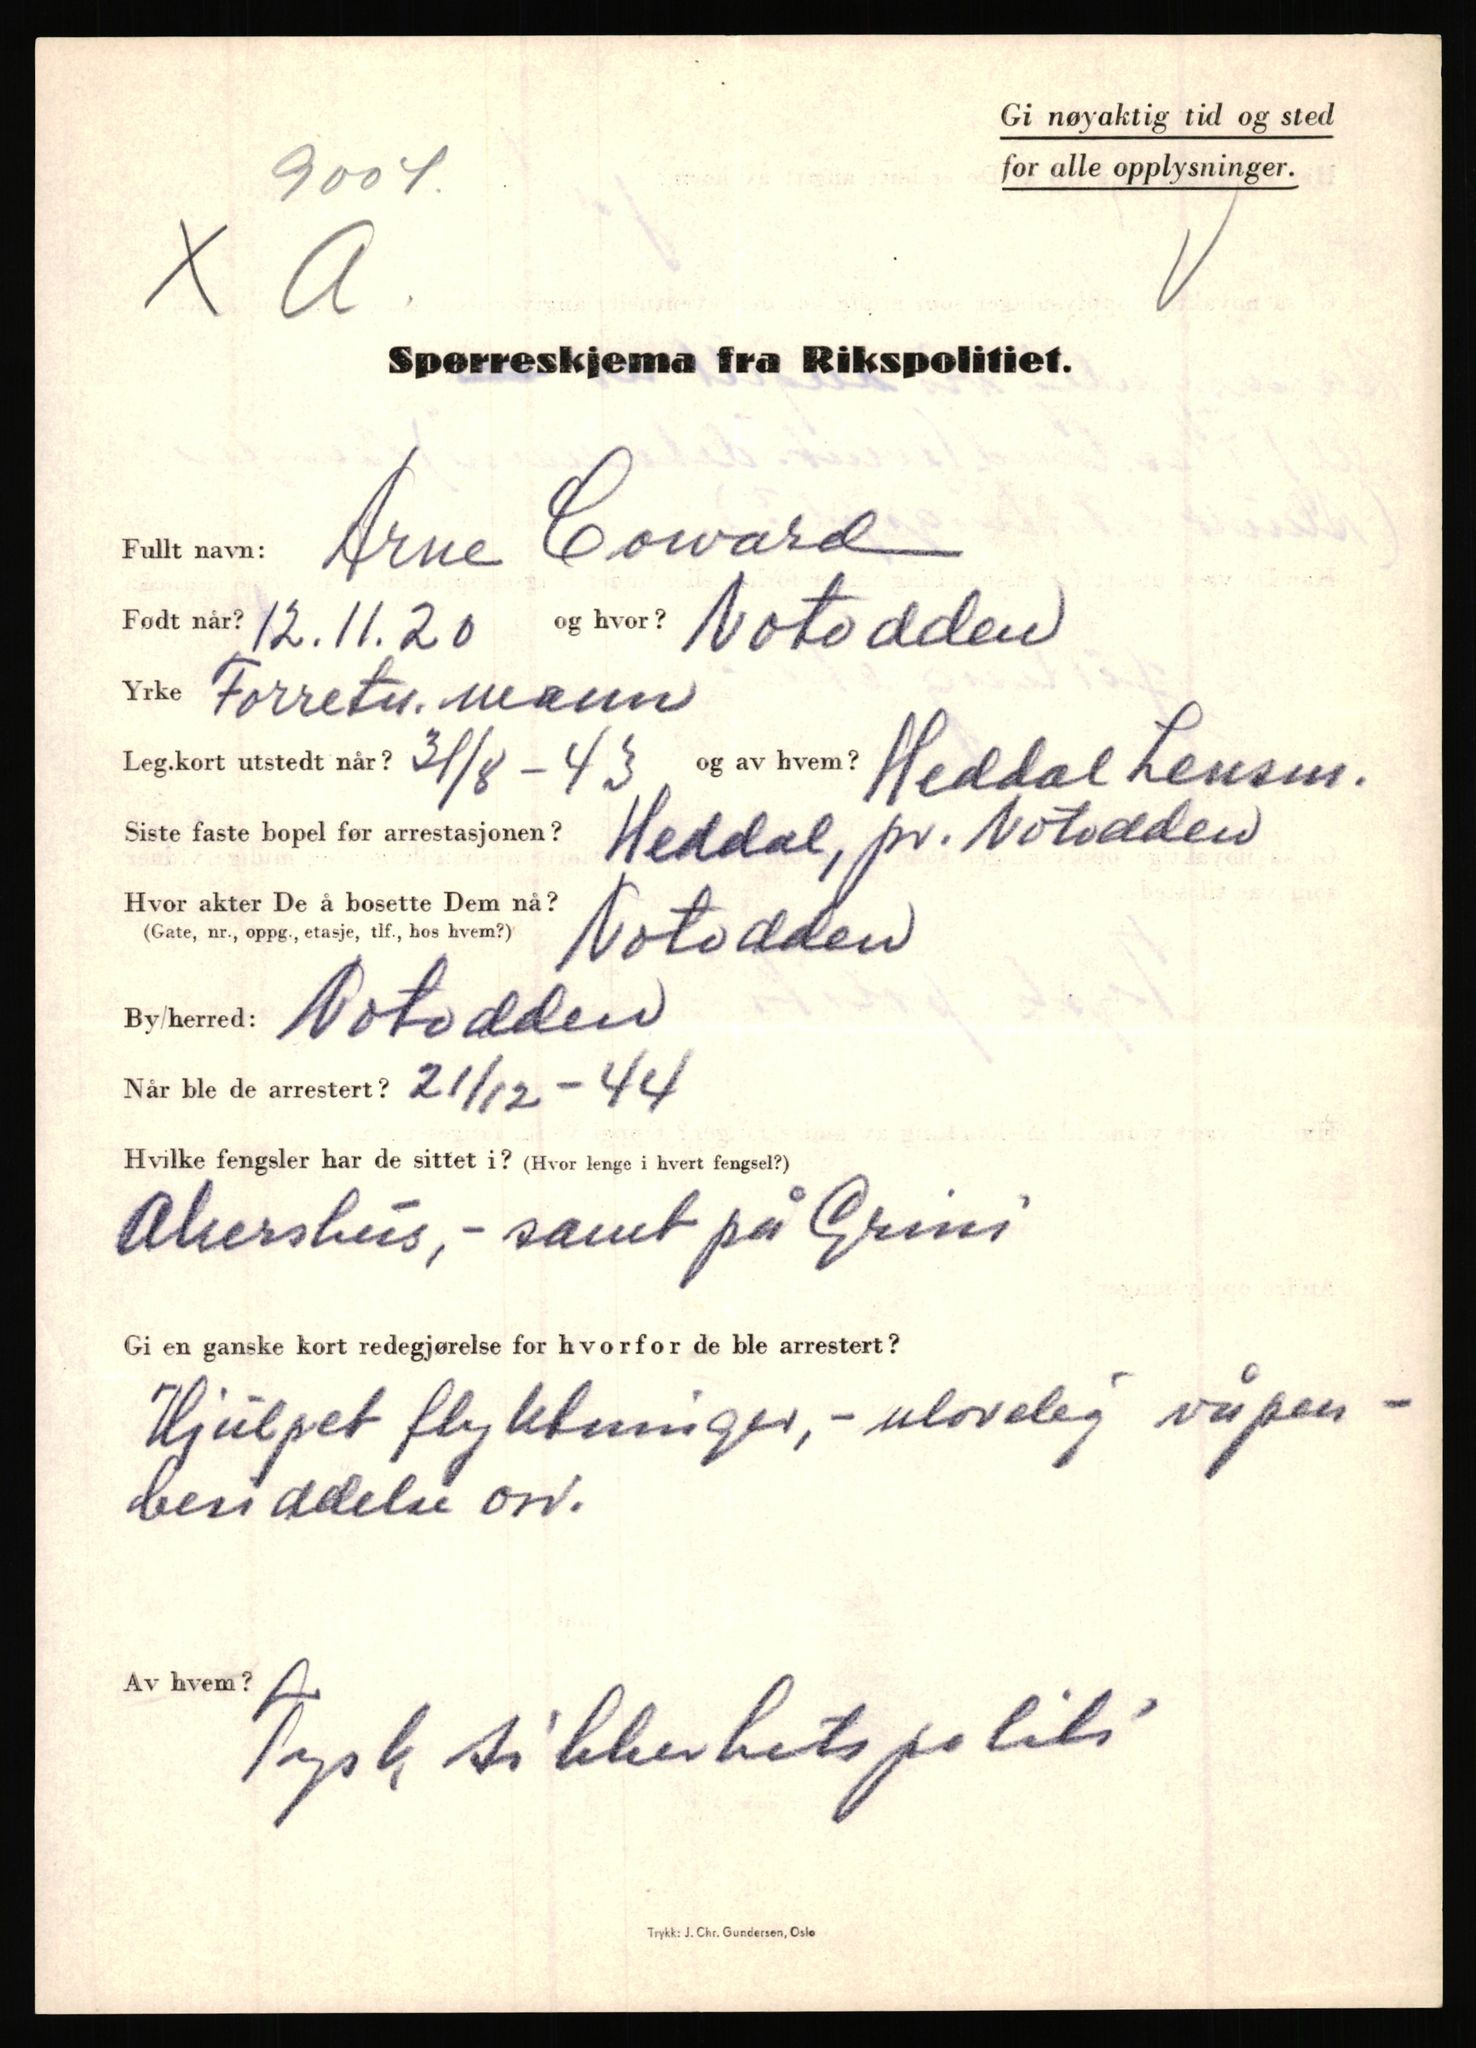 Gi nøyaktig tid og sted
for alle opplysninger.
9001.
X A.
Spørreskjema fra Rikspolitiet.
Fullt navn: Arne Coward
Født når? 12.11.20 og hvor? Notodden
Yrke Forretn. mann
Leg.kort utstedt når? 31/8 - 43 og av hvem? Heddal Lensm.
Siste faste bopel før arrestasjonen? Heddal, pr. Notodden
Hvor akter De å bosette Dem nå? Notodden
(Gate, nr., oppg., etasje, tlf., hos hvem?)
By/herred: Notodden
Når ble de arrestert? 21/12 - 44
Hvilke fengsler har de sittet i? (Hvor lenge i hvert fengsel?)
Akershus, - samt på Grini
Gi en ganske kort redegjørelse for hvorfor de ble arrestert?
Hjulpet flyktninger, - ulovlig våpen-
besiddelse osv.
Av hvem?
Tysk sikkerhetspoliti
Trykk: J. Chr. Gundersen, Oslo